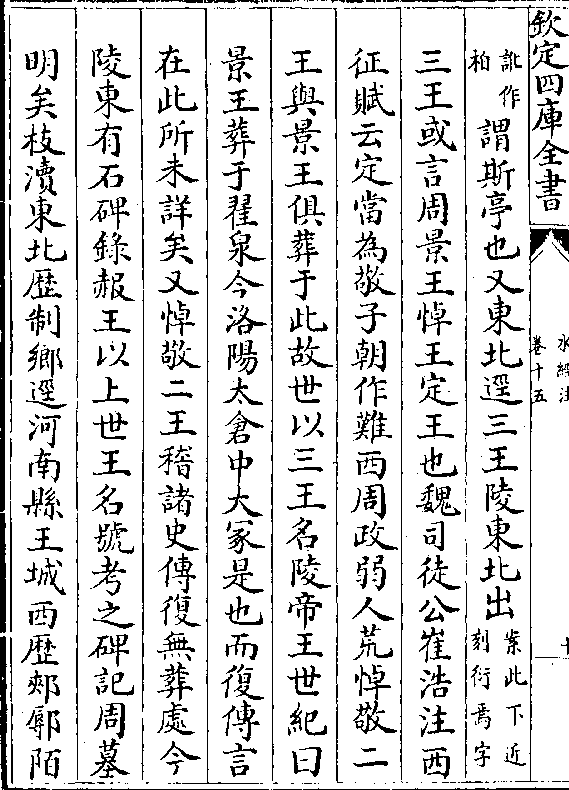 欽定四庫全書
水經注
卷十五
訛作
柏
謂斯亭也又東北逕三王陵東北出
案此下近
刻衍焉字
三王或言周景王悼王定王也魏司徒公崔浩注西
征賦云定當為敬子朝作難西周政弱人荒悼敬二
王與景王俱葬于此故世以三王名陵帝王世紀曰
景王葬于翟泉今洛陽太倉中大冢是也而復傳言
在此所未詳矣又悼敬二王稽諸史傳復無葬處今
陵東有石碑錄赧王以上世王名號考之碑記周墓
明矣枝瀆東北歷制鄉逕河南縣王城西歷郟鄏陌